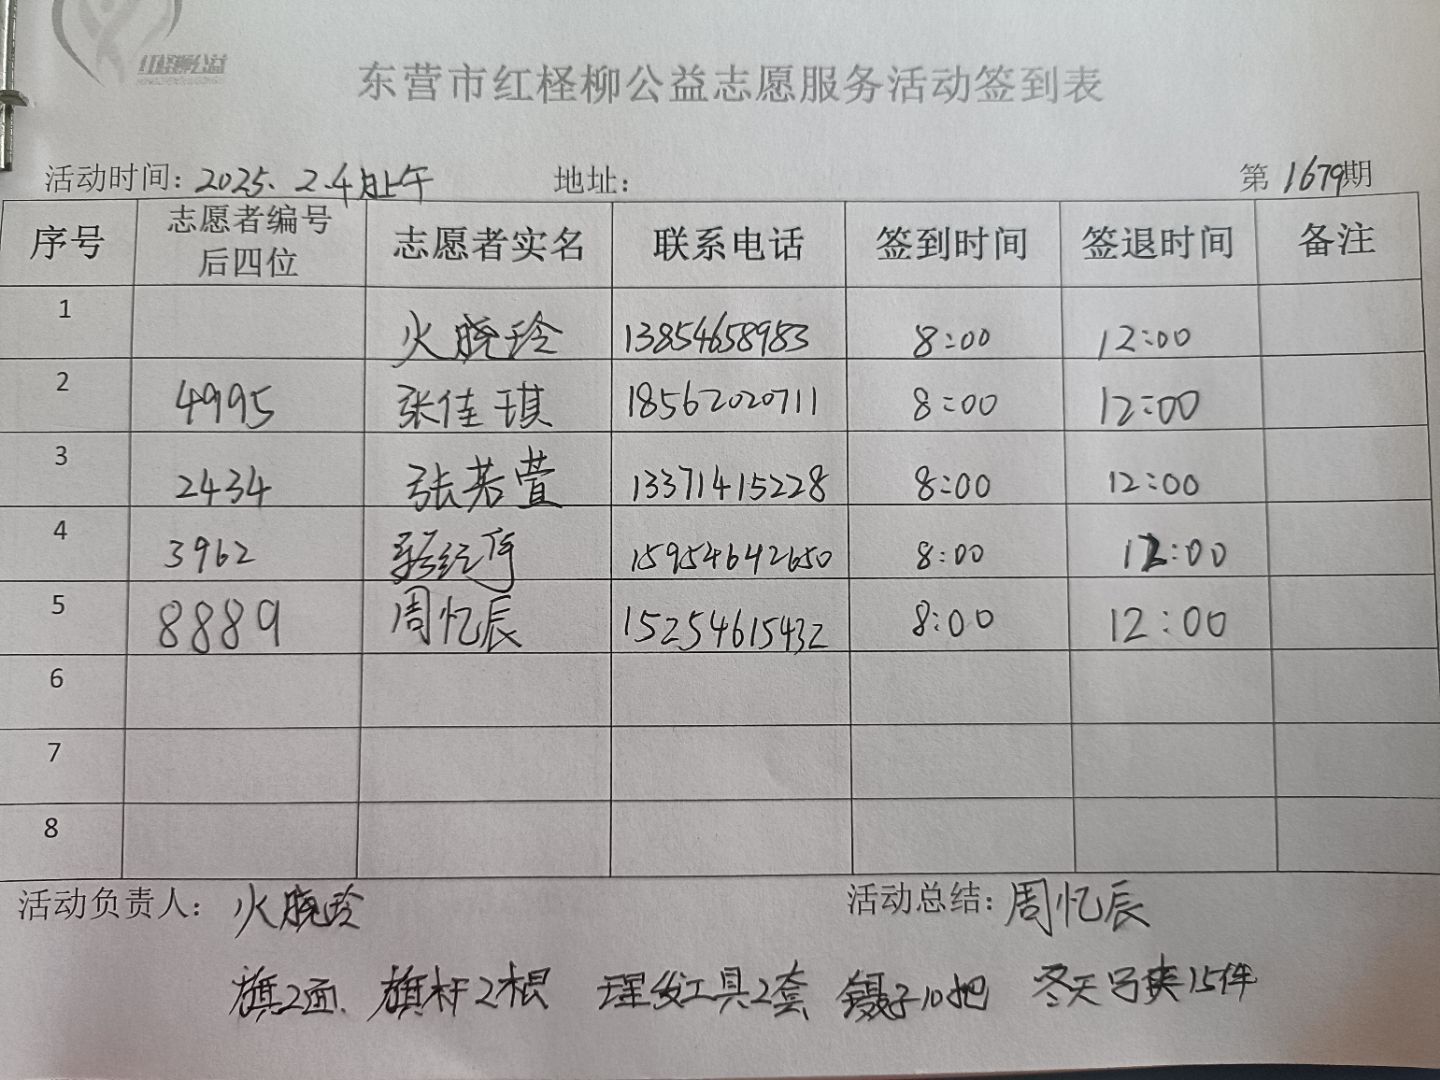 红柽柳公益
东营市红柽柳公益志愿服务活动签到表
活动时间：2025.2.4日上午 地址： 第1679期
序号 志愿者编号后四位 志愿者实名 联系电话 签到时间 签退时间 备注
1 火晓玲 13854658983 8:00 12:00
2 4995 张佳琪 18562020711 8:00 12:00
3 2434 张若萱 13371415228 8:00 12:00
4 3962 15954642650 8:00 12:00
5 8889 周忆辰 15254615432 8:00 12:00
6
7
8
活动负责人：火晓玲 活动总结：周忆辰
旗2面、旗杆2根 理发工具2套 镊子10把 冬天马夹15件